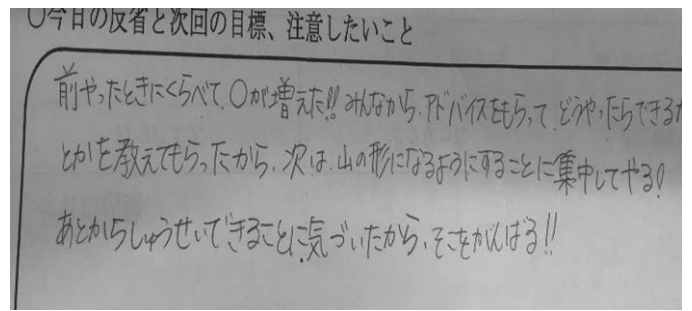 ○今日の反省と次回の目標、注意したいこと
前やったときにくらべて、○が増えた!! みんなから、アドバイスをもらって、どうやったらできるか
とかを教えてもらったから、次は、山の形になるようにすることに集中してやる!
あとからしゅうせいできることに気づいたから、そこをがんばる!!